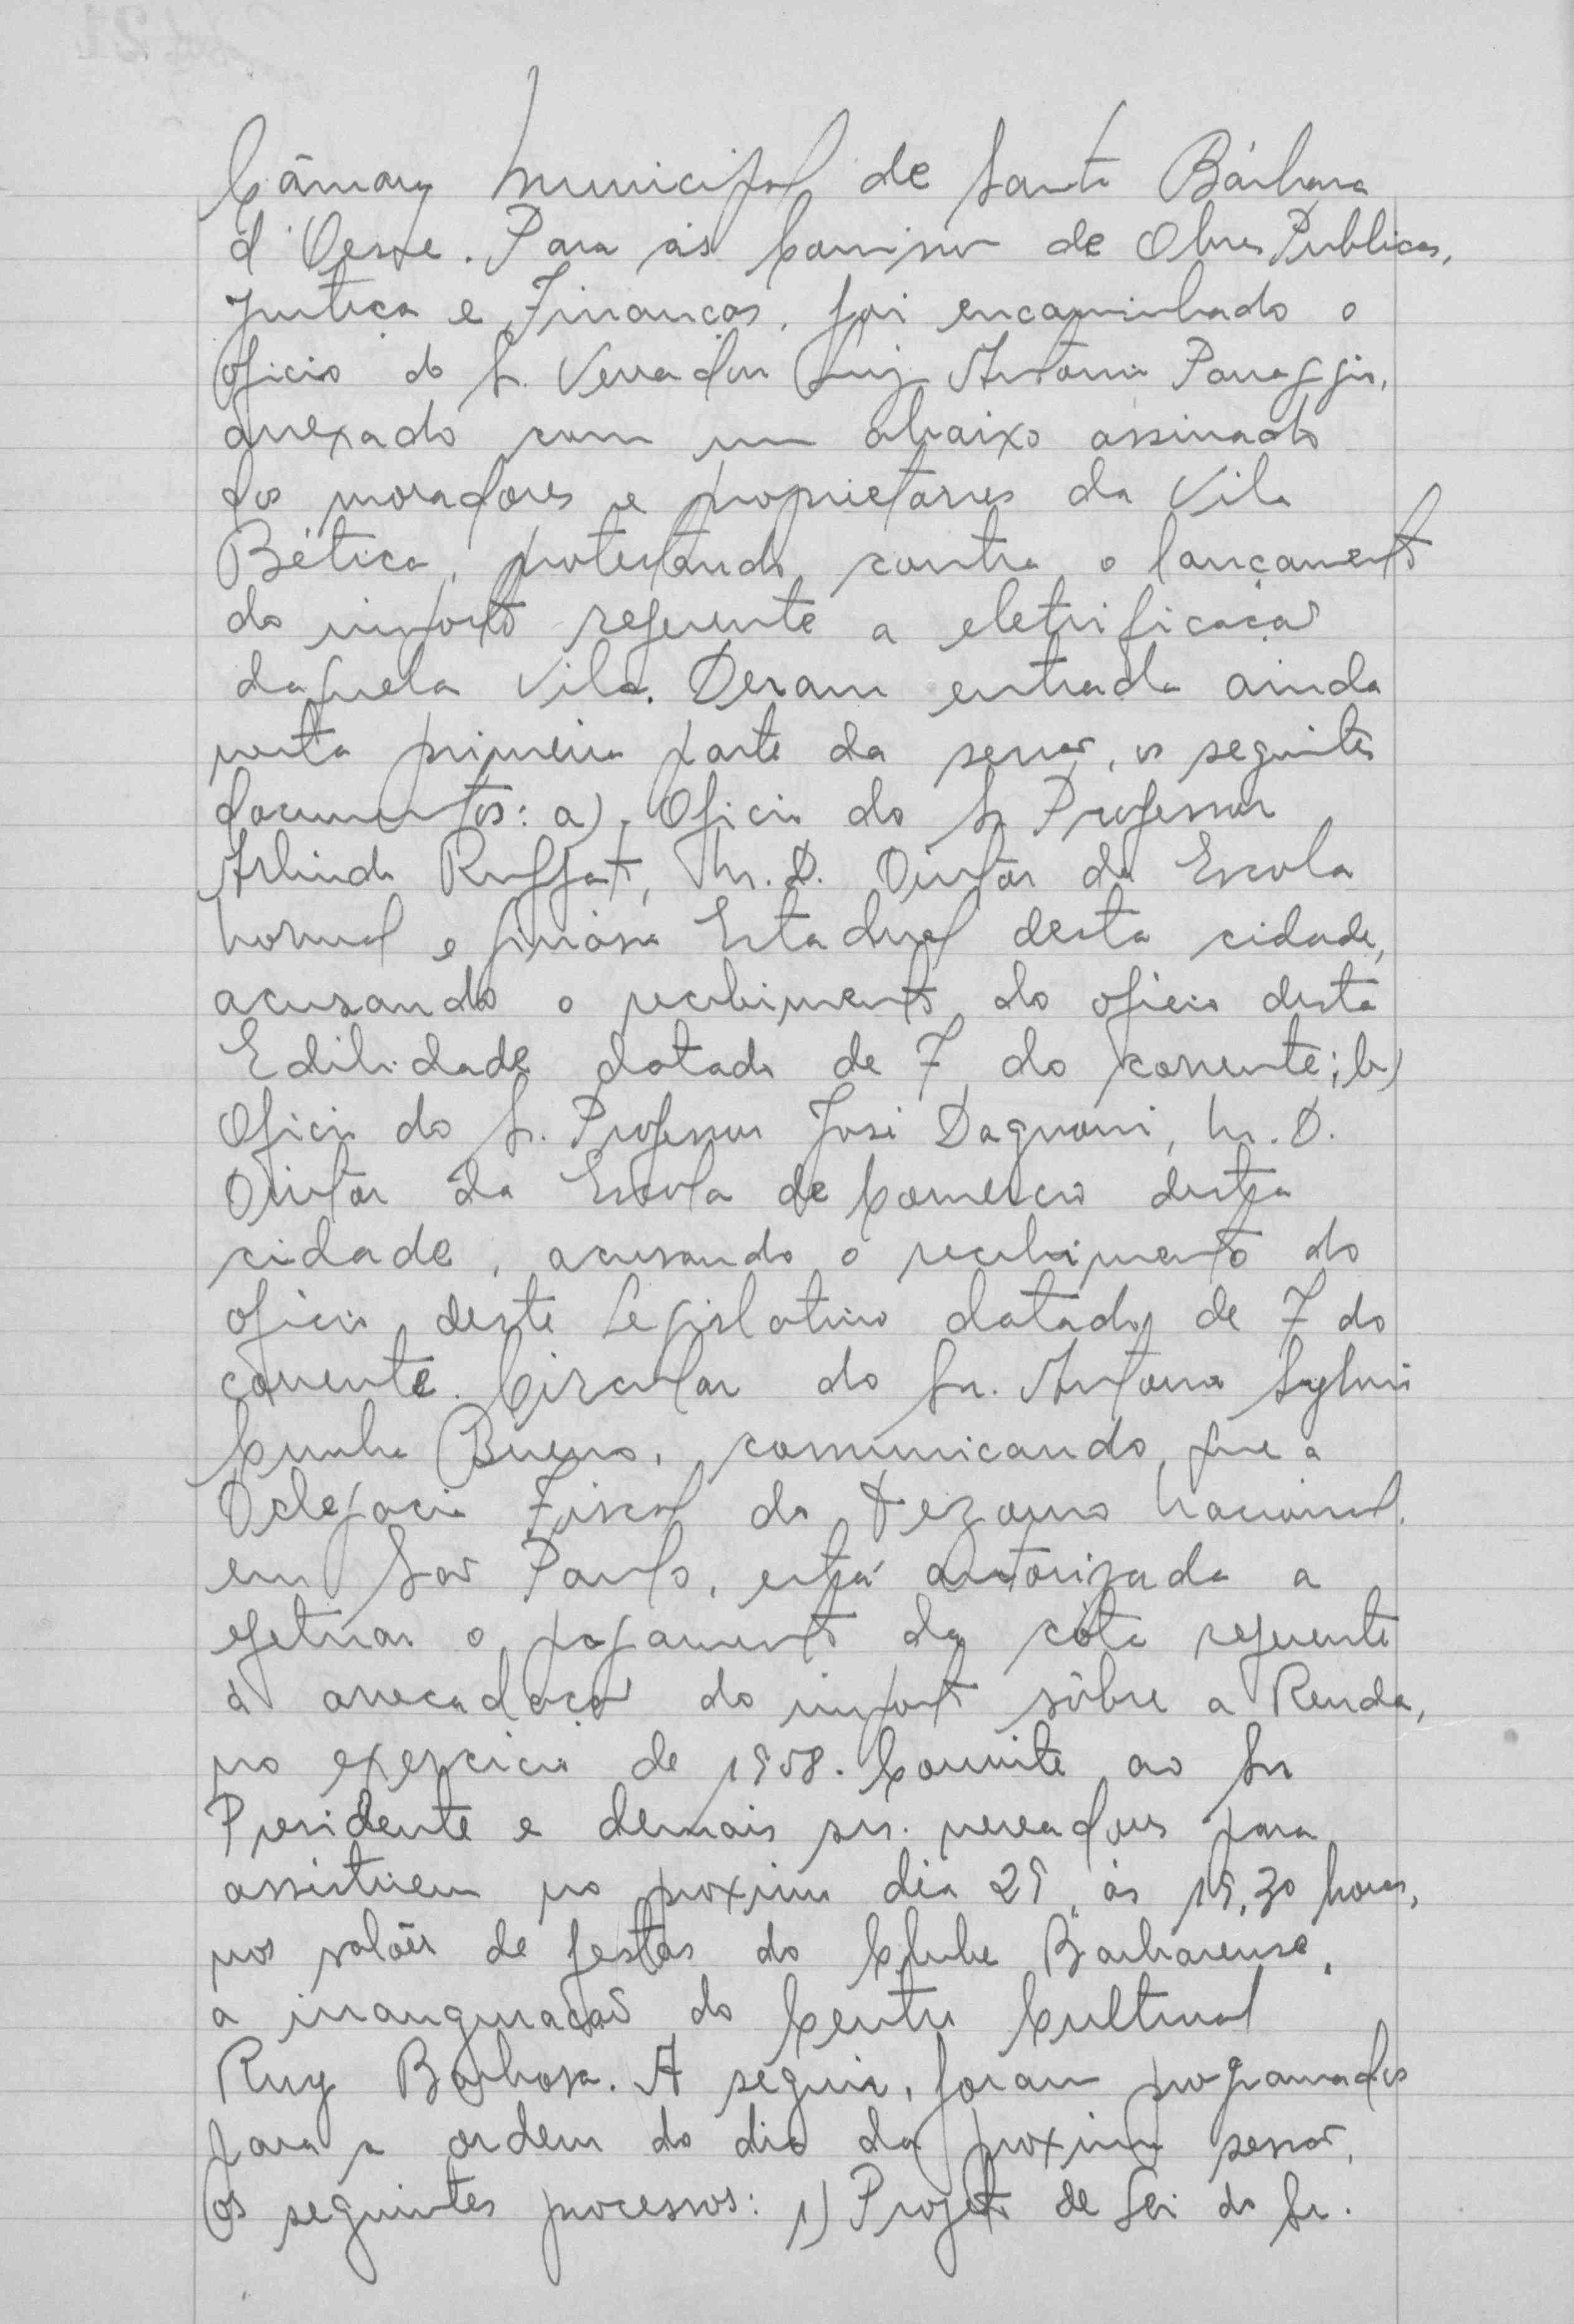 Câmara Municipal de Santa Bárbara
d'Oeste. Para as Comissões de Obras Publicas,
Justiça e Finanças, foi encaminhado o
oficio do Sr. Vereador Luiz Antonio Panaggio,
anexado com um abaixo assinado
dos moradores e proprietarios da Vila
Bética, protestando contra o lançamento
do imposto referente a eletrificação
daquela Vila. Deram entrada ainda
nesta primeira parte da sessão, os seguintes
documentos: a) Oficio do Sr Professor
Arlindo Ruffato, M. D. Diretor da Escola
Normal e Ginásio Estadual desta cidade,
acusando o recebimento do oficio desta
Edilidade datado de 7 do corrente; b)
Oficio do Sr. Professor José Dagnoni, M. D.
Diretor da Escola de Comercio desta
cidade, acusando o recebimento do
oficio deste Legislativo datado de 7 do
corrente. Circular do Sr. Antonio Sylvio
Cunha Bueno, comunicando que a
Delegacia Fiscal do Tezouro Nacional,
em São Paulo, está autorizada a
efetuar o pagamento da cóta referente
á arrecadação do imposto sôbre a Renda,
no exercicio de 1958. Convite ao Sr
Presidente e demais srs. vereadores para
assistirem no proximo dia 29, ás 19,30 horas,
nos salões de festas do Clube Barbarense,
a inauguração do Centro Cultural
Ruy Barbosa. A seguir, foram programados
para a ordem do dia da proxima sessão,
os seguintes processos: 1) Projeto de Lei do Sr.